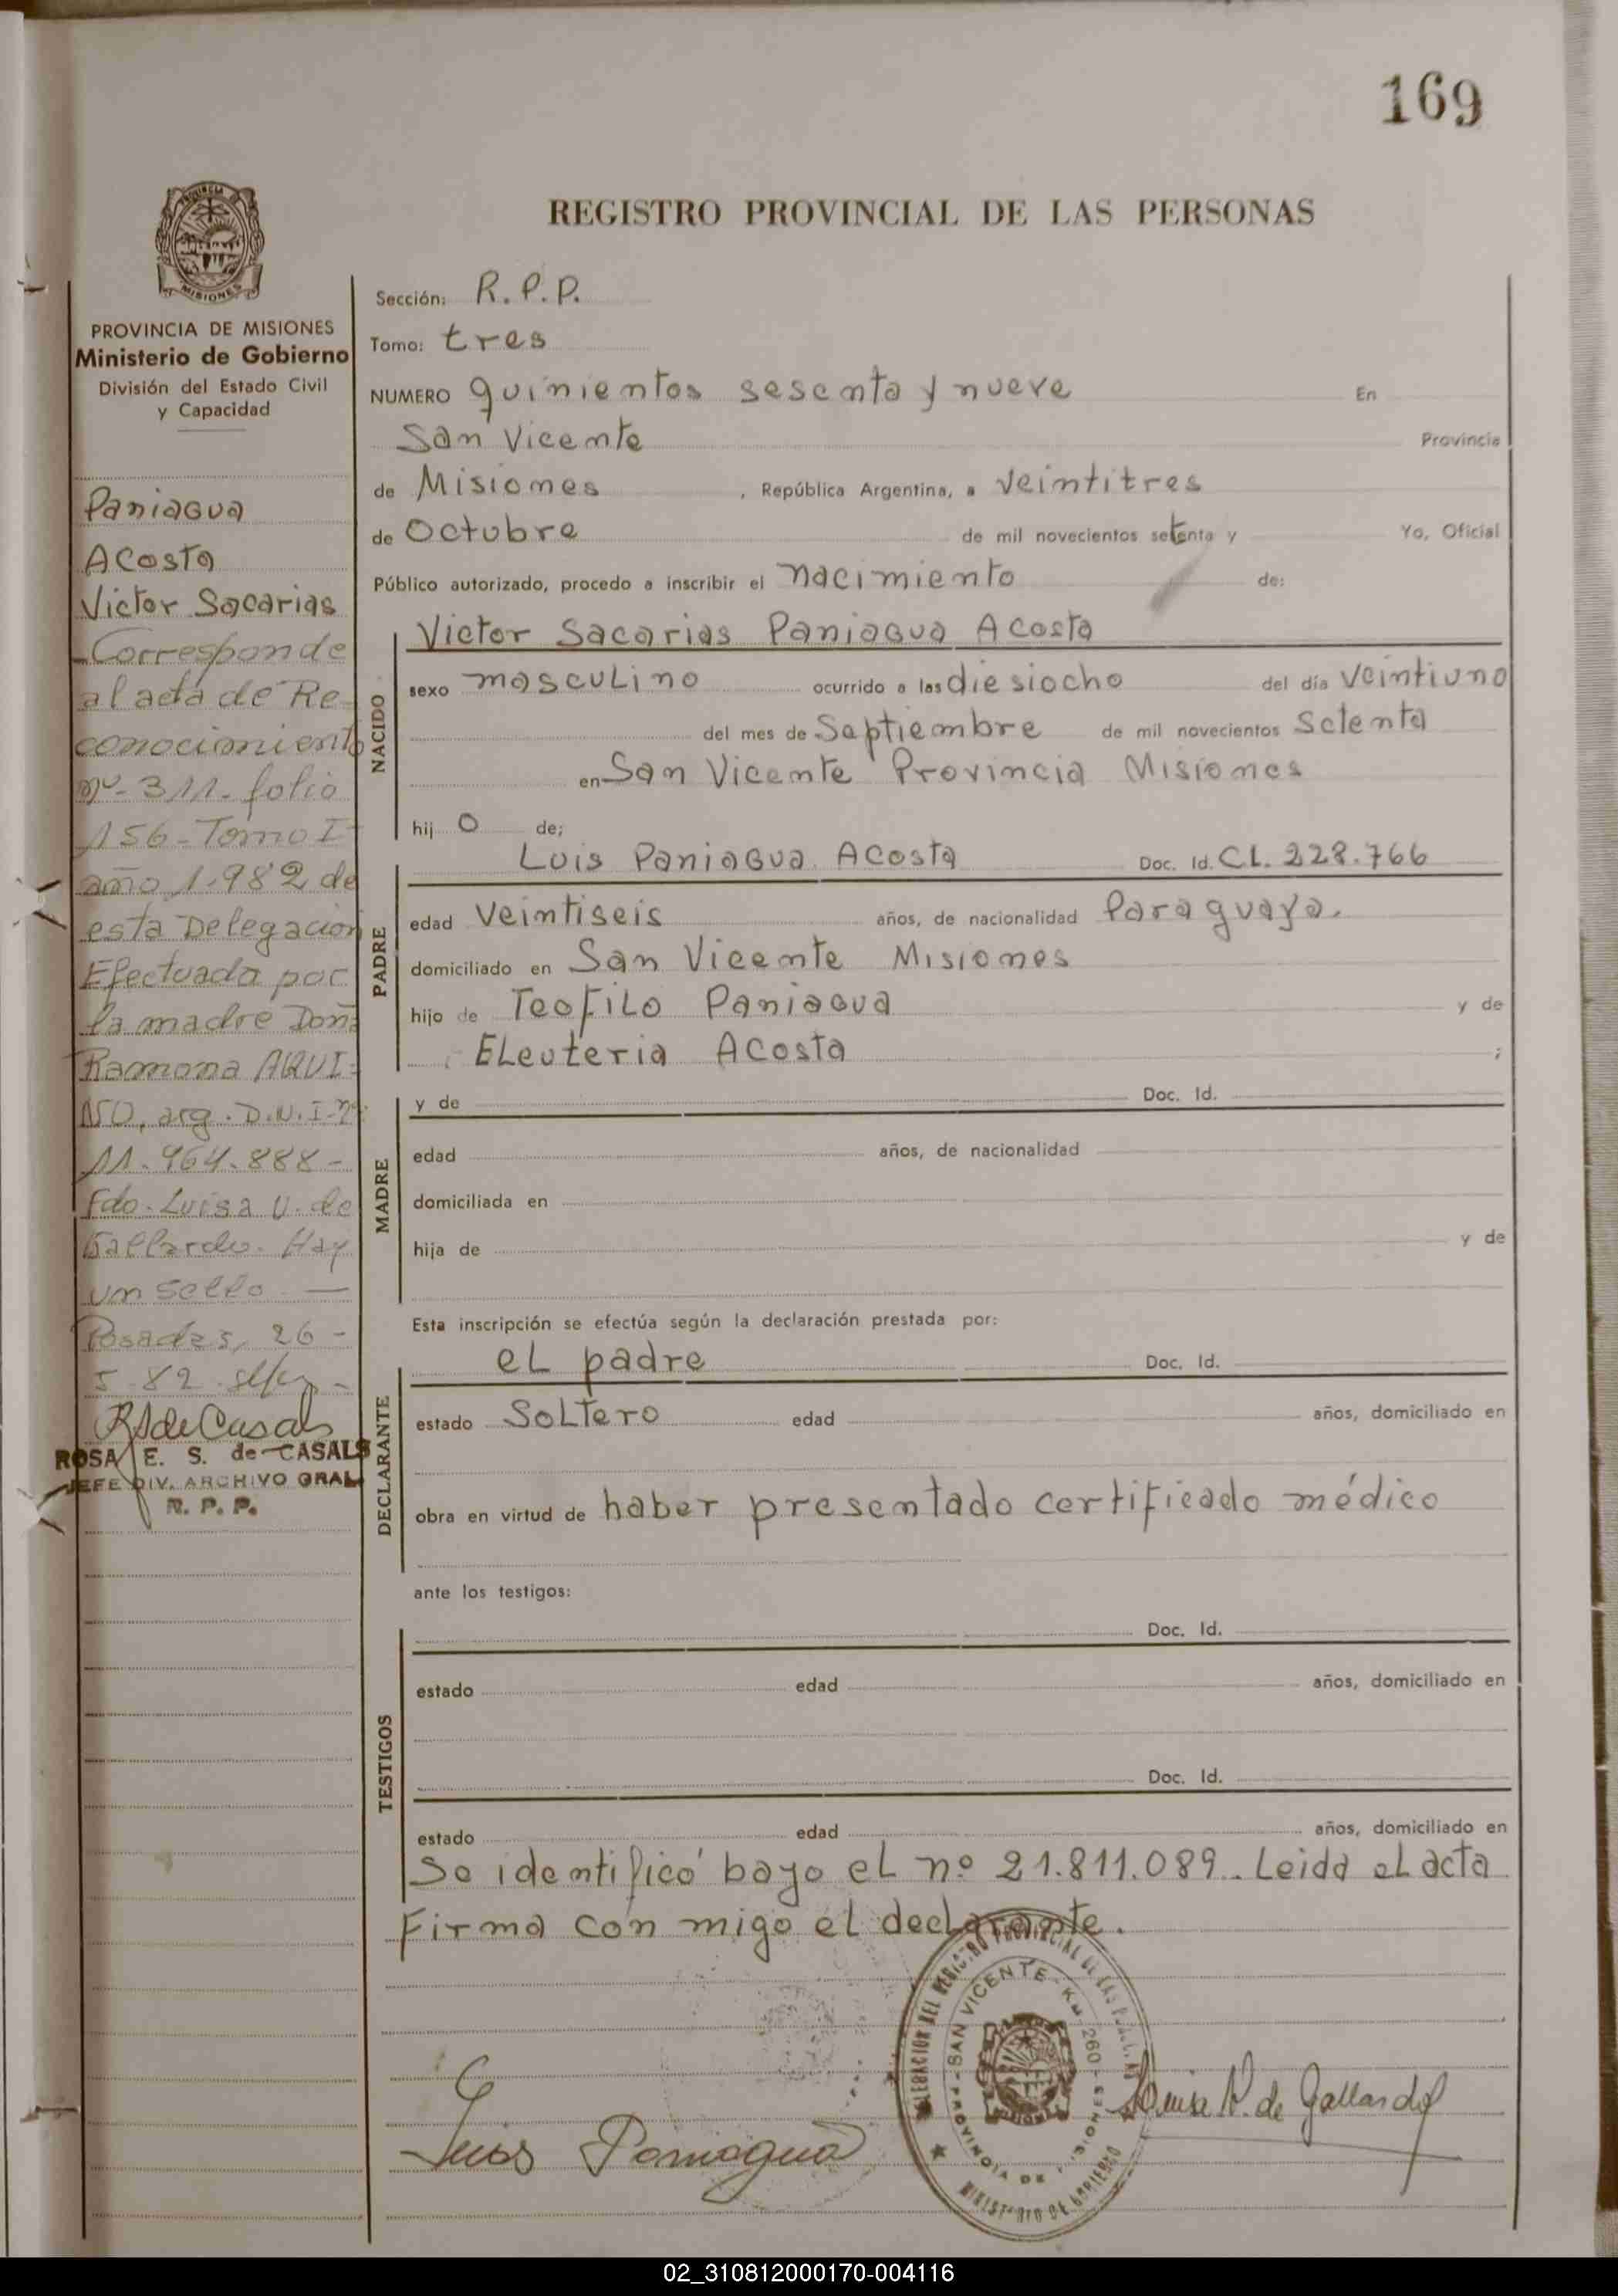 169
PROVINCIA
MISIONES
PROVINCIA DE MISIONES
Ministerio de Gobierno
División del Estado Civil
y Capacidad
Paniagua
Acosta
Victor Sacarias
Corresponde
al acta de Re-
conocimiento
nº- 311- folio
156- Tomo I-
año 1.982 de
esta Delegacion
Efectuada por
la madre Doña
Ramona AQUI-
NO, arg. D.N.I-nº
11.964.888-
Fdo. Luisa V. de
Gallardo. Hay
un sello —
Posadas, 26-
5-82.
RSdeCasals
ROSA E. S. de CASALS
JEFE DIV. ARCHIVO GRAL
R. P. P.
REGISTRO PROVINCIAL DE LAS PERSONAS
Sección: R.P.P.
Tomo: tres
NUMERO quinientos sesenta y nueve En
San Vicente Provincia
de Misiones , República Argentina, a veintitres
de Octubre de mil novecientos setenta y Yo, Oficial
Público autorizado, procedo a inscribir el nacimiento de:
NACIDO
Victor Sacarias Paniagua Acosta
sexo masculino ocurrido a las diesiocho del día veintiuno
del mes de Septiembre de mil novecientos setenta
en San Vicente Provincia Misiones
hij o de;
PADRE
Luis Paniagua Acosta Doc. Id. CI. 228.766
edad veintiseis años, de nacionalidad Paraguaya.
domiciliado en San Vicente Misiones
hijo de Teofilo Paniagua y de
Eleuteria Acosta ;
MADRE
y de Doc. Id.
edad años, de nacionalidad
domiciliada en
hija de y de
Esta inscripción se efectúa según la declaración prestada por:
DECLARANTE
el padre Doc. Id.
estado Soltero edad años, domiciliado en
obra en virtud de haber presentado certificado médico
ante los testigos:
TESTIGOS
Doc. Id.
estado edad años, domiciliado en
Doc. Id.
estado edad años, domiciliado en
Se identificó bajo el nº 21.811.089.. Leida el acta
Firma con migo el declarante.
DELEGACION DEL REGISTRO PROVINCIAL DE LAS PERSONAS
SAN VICENTE - Km 260 -
PROVINCIA DE MISIONES
MINISTERIO DE GOBIERNO
Luis Paniagua
Luisa V. de Gallardo
02_310812000170-004116